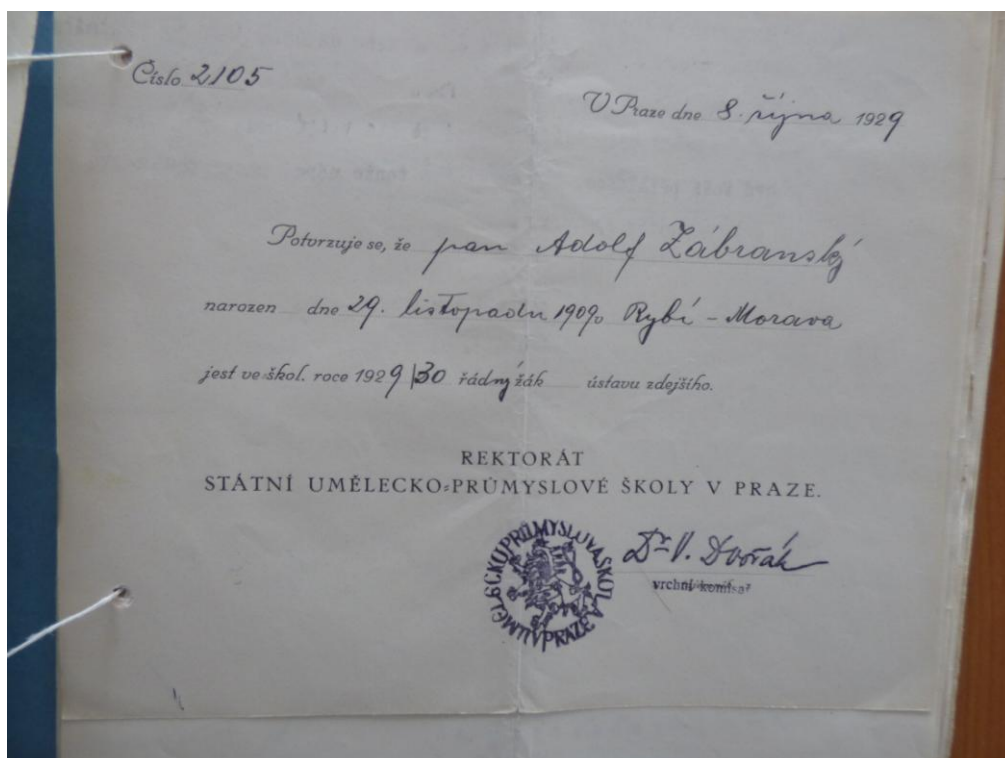 Číslo 2105
V Praze dne 8. října 1929
Potvrzuje se, že pan Adolf Zábranský
narozen dne 29. listopadu 1909 v Rybí - Morava
jest ve škol. roce 1929/30 řádný žák ústavu zdejšího.
REKTORÁT
STÁTNÍ UMĚLECKO-PRŮMYSLOVÉ ŠKOLY V PRAZE.
UMĚLECKOPRŮMYSLOVÁ ŠKOLA V PRAZE
Dr V. Dvořák
vrchní komisař